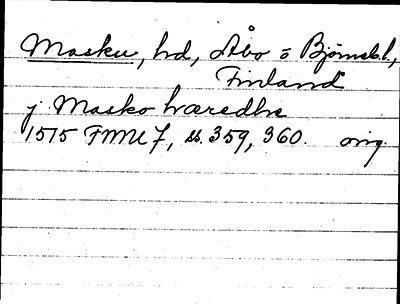 Masku, hd, Åbo o Björnebl.,
Finland
j Masko hæredhe
1515 FMU 7, ss. 359, 360. orig.